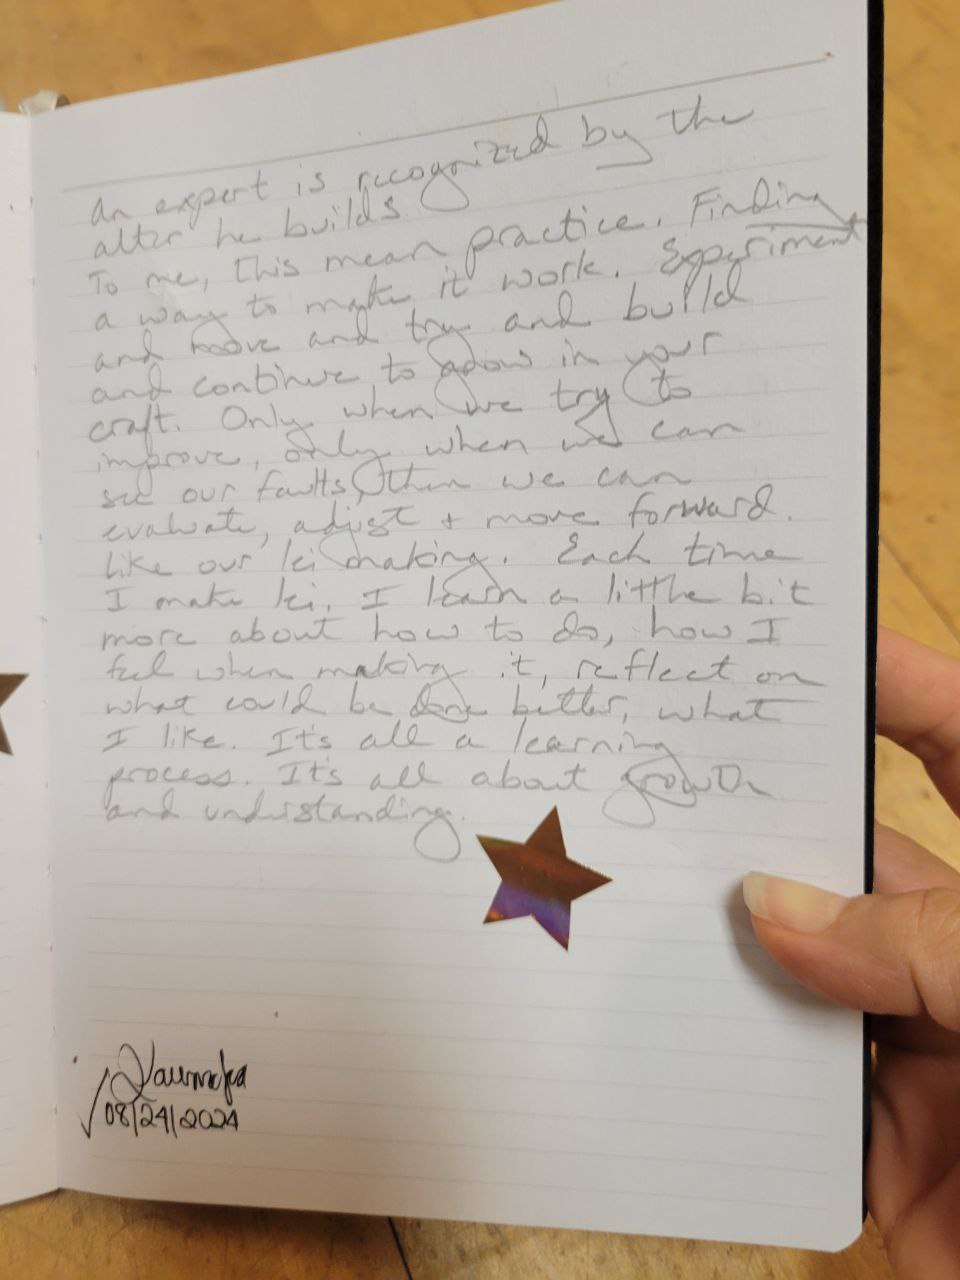 An expert is recognized by the
alter he builds.
To me, this mean practice. Finding
a way to make it work. Experiment
and move and try and build
and continue to grow in your
craft. Only when we try to
improve, only when we can
see our faults, then we can
evaluate, adjust + move forward.
Like our lei making. Each time
I make lei, I learn a little bit
more about how to do, how I
feel when making it, reflect on
what could be done better, what
I like. It's all a learning
process. It's all about growth
and understanding.
08/24/2024